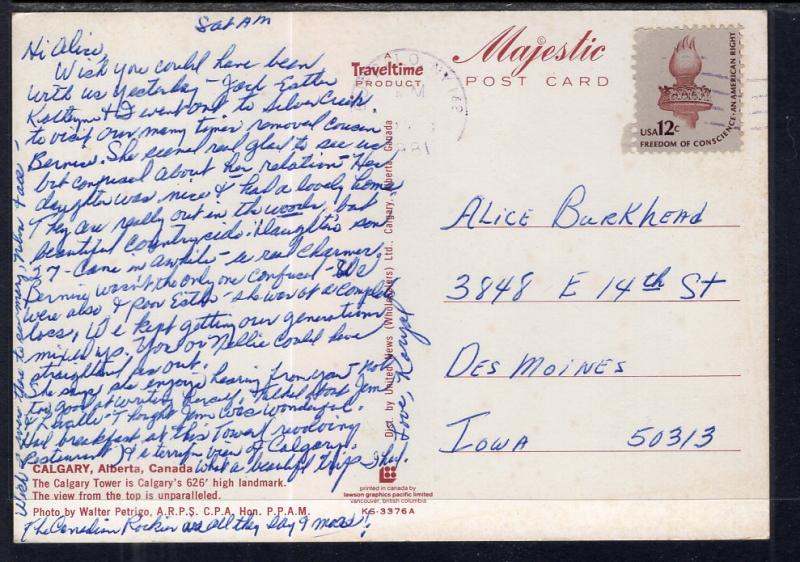 Sat AM
Hi Alice,
Wish you could have been
with us yesterday - Jack Esther
Kathryn & I went out to Silver Creek
to visit our many times removal cousin
Bernice. She seemed real glad to see us
but confused about her relation - Her
daughter was nice & had a lovely home
They are really out in the woods, but
beautiful countryside. Daughter's son
27 - came in awhile - a real charmer.
wasn't the only one confused - We
were also & poor Esther - she was at a complete
loss, We kept getting our generations
mixed up. You or Nellie could have
straightened us out.
She says she enjoys hearing from you - not
too good at writing herself.
& Lucille. Thought Jim was wonderful.
Had breakfast at this Tower revolving
restaurant & a terrific view of Calgary.
What a beautiful trip
Love,
The Canadian Rockies are all they say & more!
CALGARY, Alberta, Canada
The Calgary Tower is Calgary's 626' high landmark.
The view from the top is unparalleled.
Photo by Walter Petrigo, A.R.P.S. C.P.A. Hon. P.P.A.M.
A
Traveltime
PRODUCT
Dist. by United News (Wholesalers) Ltd., Calgary, Alberta, Canada
printed in canada by
lawson graphics pacific limited
vancouver, british columbia
KS-3376A
Majestic
POST CARD
USA 12c
FREEDOM OF CONSCIENCE - AN AMERICAN RIGHT
Alice Burkhead
3848 E 14th St
Des Moines
Iowa 50313